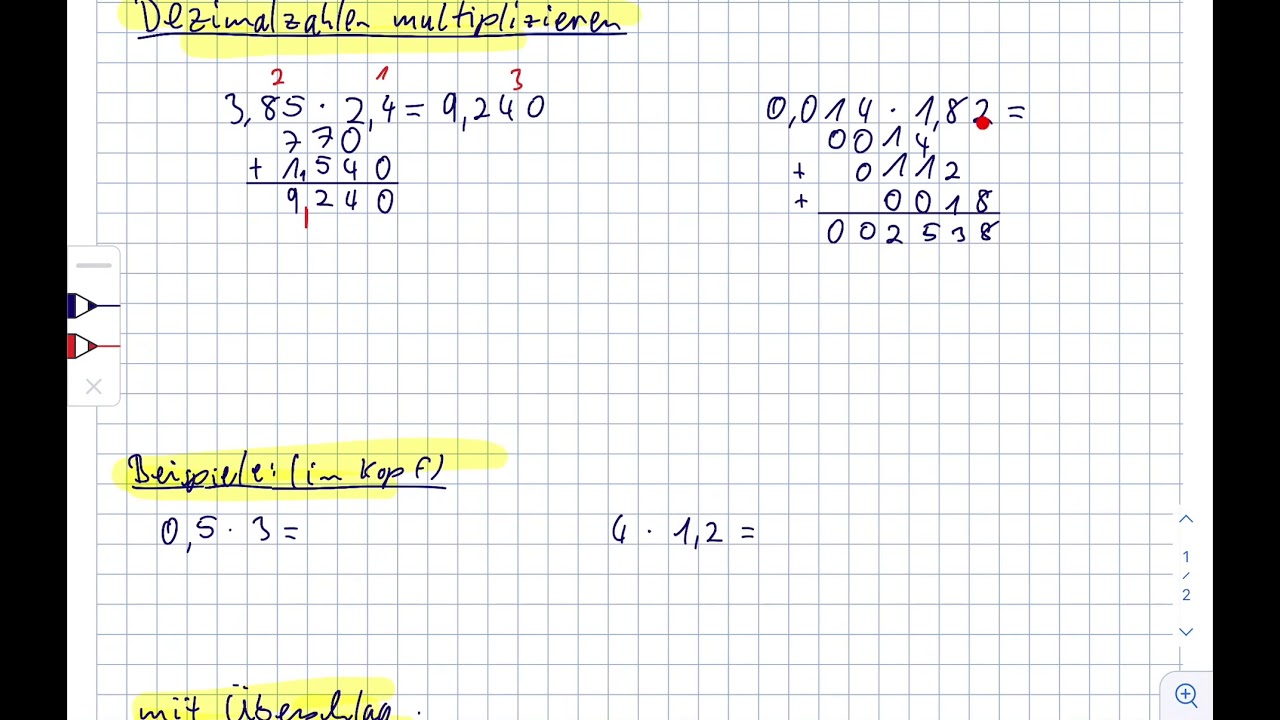 Dezimalzahlen multiplizieren
2 1 3
3,85 · 2,4 = 9,240
770
+ 1,540
9240
0,014 · 1,82 =
0014
+ 0112
+ 0018
002538
Beispiele: (im Kopf)
0,5 · 3 =
4 · 1,2 =
1
/
2
mit Überschlag: